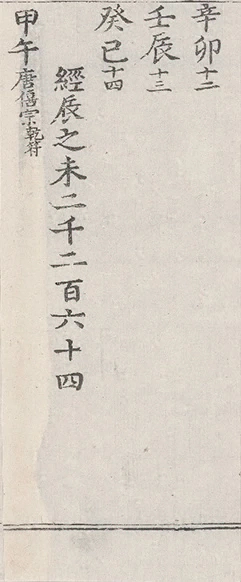 辛卯十二
壬辰十三
癸巳十四
經辰之未二千二百六十四
甲午唐僖宗乾符